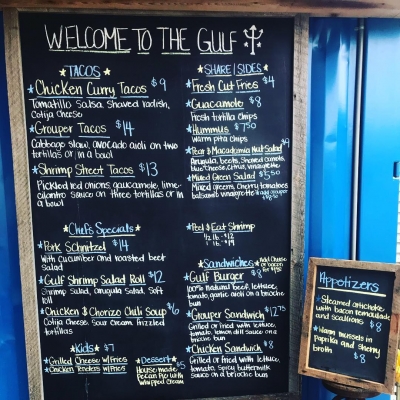 WELCOME TO THE GULF
TACOS
Chicken Curry Tacos $9
Tomatillo Salsa, Shaved radish,
Cotija Cheese
Grouper Tacos $14
Cabbage slaw, avocado aioli on two
tortillas or in a bowl
Shrimp Street Tacos $13
Pickled red onions, guacamole, lime-
cilantro sauce on three tortillas or in
a bowl
Chef's Specials
Pork Schnitzel $14
With cucumber and roasted beet
Salad
Gulf Shrimp Salad Roll $12
Shrimp Salad, arugula Salad, Soft
roll
Chicken & Chorizo Chili Soup $6
Cotija Cheese, Sour cream, frizzled
tortillas
Kids $7
Grilled Cheese w/Fries
Chicken Tenders w/Fries
Dessert $5
House-made
Pecan Pie with
Whipped Cream
SHARE / SIDES
Fresh Cut Fries $4
Guacamole $8
Fresh tortilla Chips
Hummus $7.50
Warm pita Chips
Pear & Macadamia Nut Salad $9
Arugula, beets, Shaved Carrots,
blue Cheese, Citrus vinaigrette
Mixed Green Salad $5.50
Mixed greens, Cherry tomatoes
balsamic vinaigrette
Peel & Eat Shrimp
1/2 lb - $12
1 lb - $19
Sandwiches
Add Cheese
or bacon
for $1
Gulf Burger $8
100% natural beef, lettuce,
tomato, garlic aioli on a brioche
bun
Grouper Sandwich $12.75
Grilled or fried with lettuce,
tomato, lemon aioli on a
brioche bun
Chicken Sandwich $8
Grilled or fried with lettuce,
tomato, Spicy buttermilk
Sauce on a brioche bun
Appetizers
Steamed artichoke
with bacon remoulade
and scallions $8
Warm mussels in
paprika and sherry
broth $8